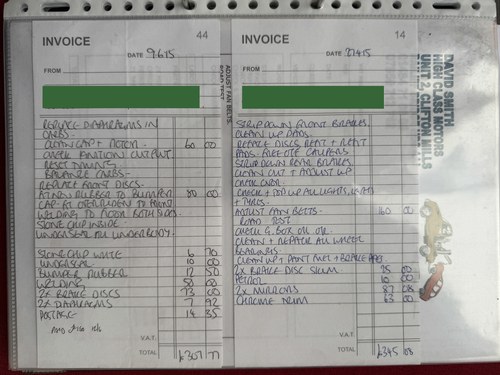 INVOICE 44
DATE 9.6.15
FROM
REPLACE DIAPHRAGMS IN
CARBS.
CLEAN CAP + ROTOR. 60 00
CHECK IGNITION OUTPUT.
RESET
BALANCE CARBS.
REPLACE FRONT DISCS.
RUBBER TO BUMPER 80 00
WELDING TO FLOOR BOTH SIDES.
STONECHIP INSIDE
UNDERSEAL ALL UNDERBODY.
STONECHIP WHITE 6 70
UNDERSEAL 10 00
BUMPER RUBBER 12 50
WELDING 50 00
2X BRAKE DISCS 73 00
2X DIAPHRAGMS 7 92
POSTAGE 14 35
V.A.T.
TOTAL
ADJUST FAN BELTS.
ROAD TEST
INVOICE 14
DATE
FROM
STRIP DOWN FRONT BRAKES.
CLEAN UP PADS.
REPLACE DISCS REAT + REAT
PADS. FREE OFF CALIPERS
STRIP DOWN REAR BRAKES.
CLEAN OUT + ADJUST UP
CHECK OVER.
CHECK + PUMP ALL LIGHTS,
+ TYRES.
ADJUST FAN BELTS. 160 00
ROAD TEST
CHECK G.BOX OIL OK.
CLEAN + REPAIR ALL WHEEL
BEARINGS.
CLEAN UP + PAINT FUEL + BRAKE PIPE
2X BRAKE DISC SKIM. 25 00
PETROL 10 00
2X MIRRORS 87 08
CHROME TRIM 63 00
V.A.T.
TOTAL £345 08
DAVID SMITH
HIGH CLASS MOTORS
UNIT 2, CLIFTON MILLS